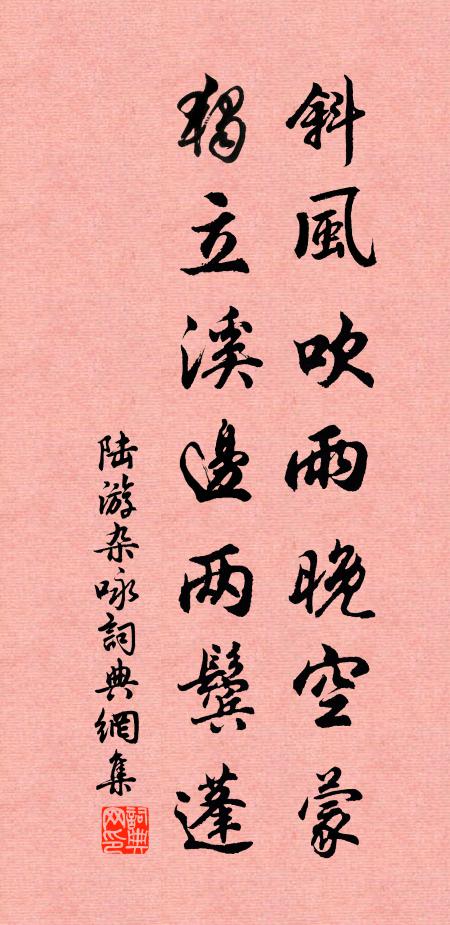 斜風吹雨晚空蒙
獨立溪邊两鬓蓬
陆游杂咏詞典網集
詞典网印